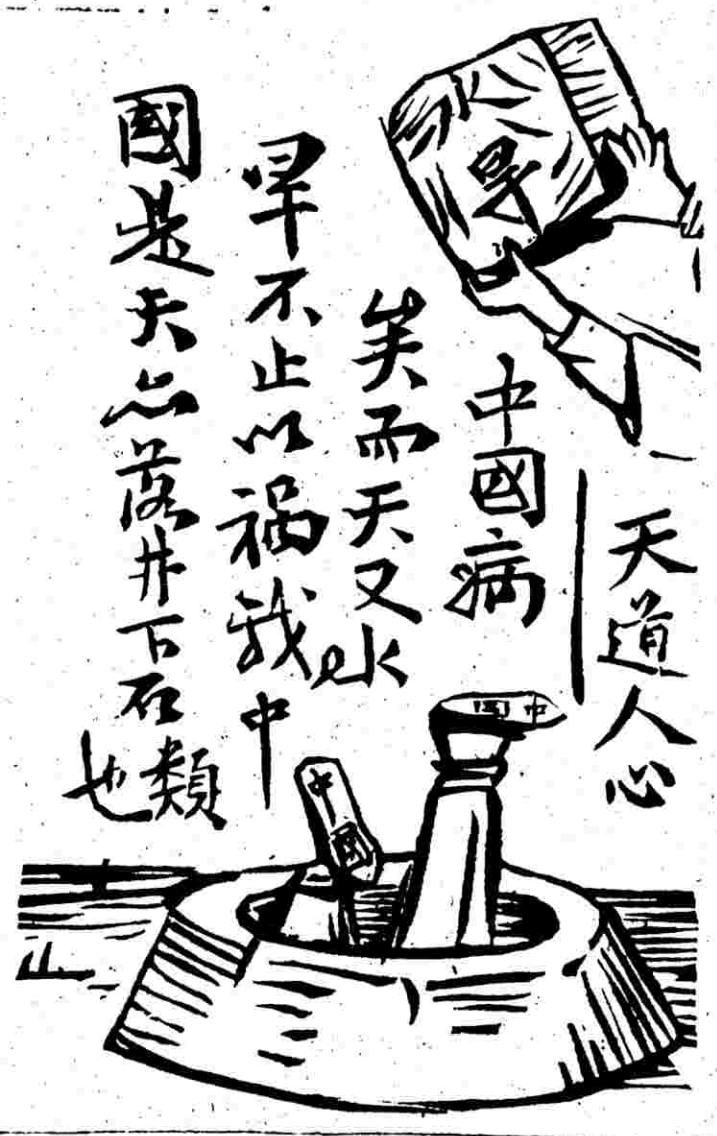 水旱
天道人心
中國病
矣而天又水
旱不止以禍我中
國是天亦落井下石類
也
中國
中國